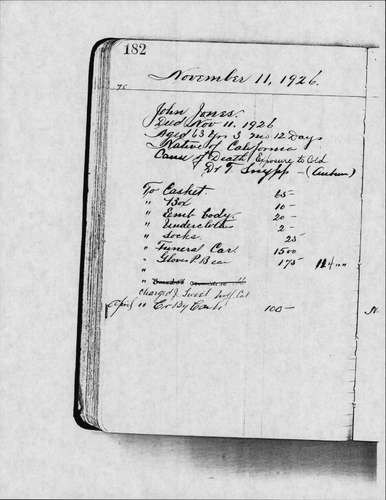 182
November 11, 1926.
75
John Jones.
Died Nov 11. 1926
Aged 63 Yrs 3 mo 12 Days
Native of California
Cause of Death Exposure to Cold
Dr T. Snypp - (Auburn)
To Casket. 65-
" Box 10-
" Emb body. 20-
" Undercloth 2-
" Socks. 25
" Funeral Car 1500
" Gloves P. Bear 175 114 " "
"
"
Charged J. Sweet
" Cr By Cash 100-